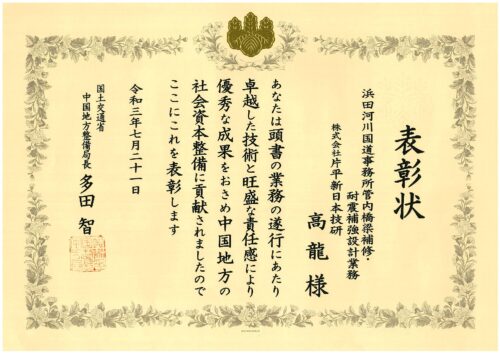 表彰状
浜田河川国道事務所管内橋梁補修・
耐震補強設計業務
株式会社片平新日本技研
高龍様
あなたは頭書の業務の遂行にあたり
卓越した技術と旺盛な責任感により
優秀な成果をおさめ中国地方の
社会資本整備に貢献されましたので
ここにこれを表彰します
令和三年七月二十一日
国土交通省
中国地方整備局長
多田智